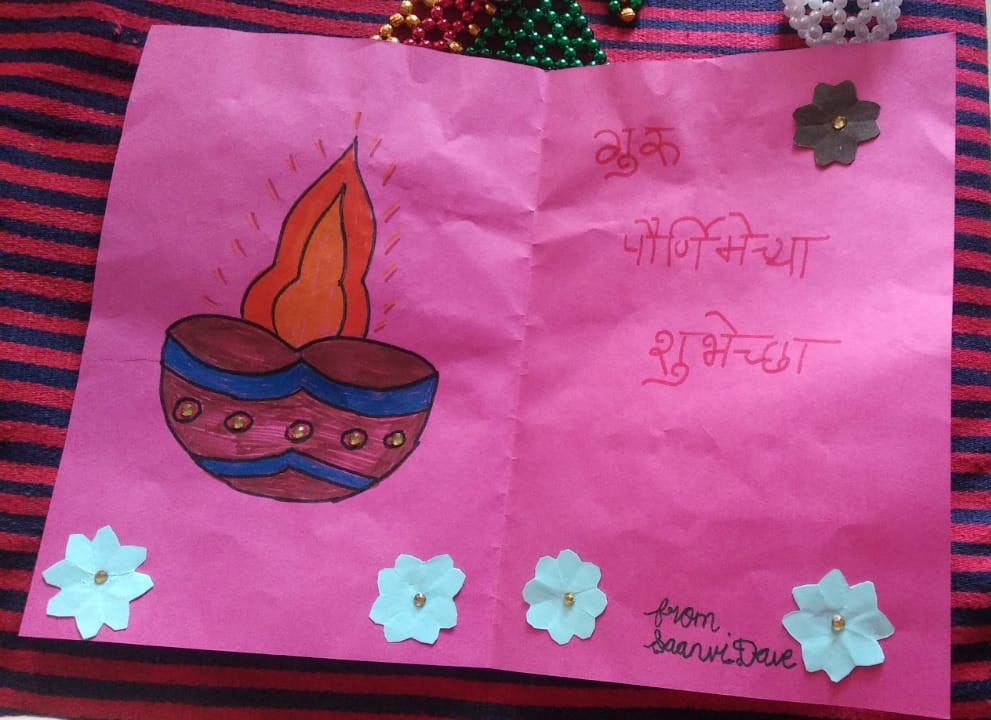 गुरु
पौर्णिमेच्या
शुभेच्छा
from
Saanvi Dave